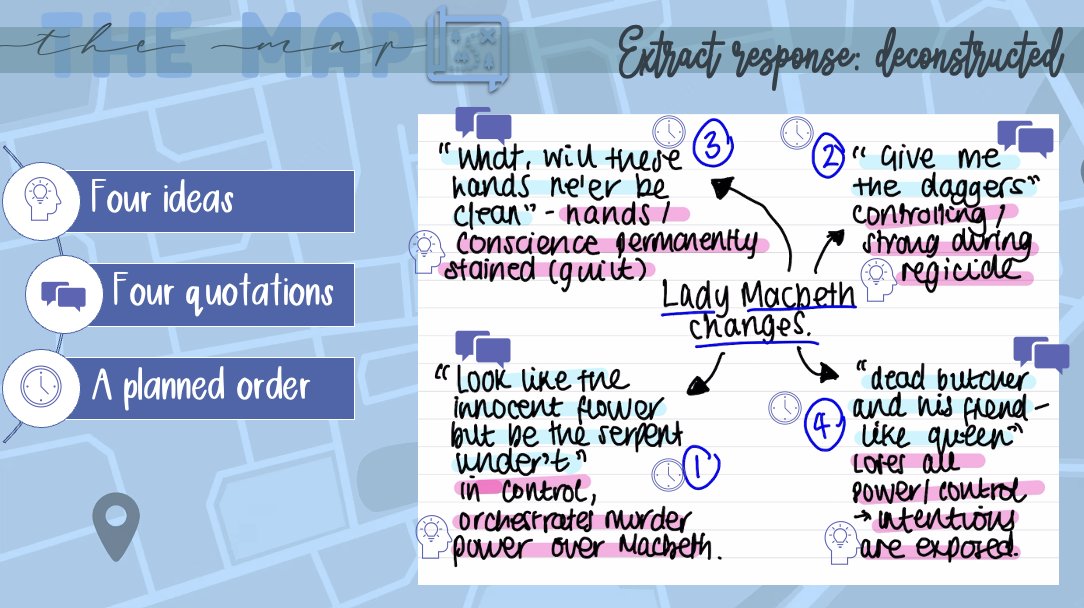 THE MAP
the map
Extract response: deconstructed
Four ideas
Four quotations
A planned order
"What, will these
hands ne'er be
clean" - hands /
conscience permanently
stained (guilt)
3
2
"Give me
the daggers"
controlling /
strong during
regicide
Lady Macbeth
changes.
"Look like the
innocent flower
but be the serpent
under't"
1
in control,
orchestrates murder
power over Macbeth.
4
"dead butcher
and his fiend-
like queen"
loses all
power/control
→ intentions
are exposed.